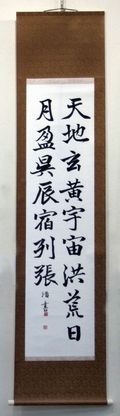 天地玄黄宇宙洪荒日
月盈昃辰宿列張